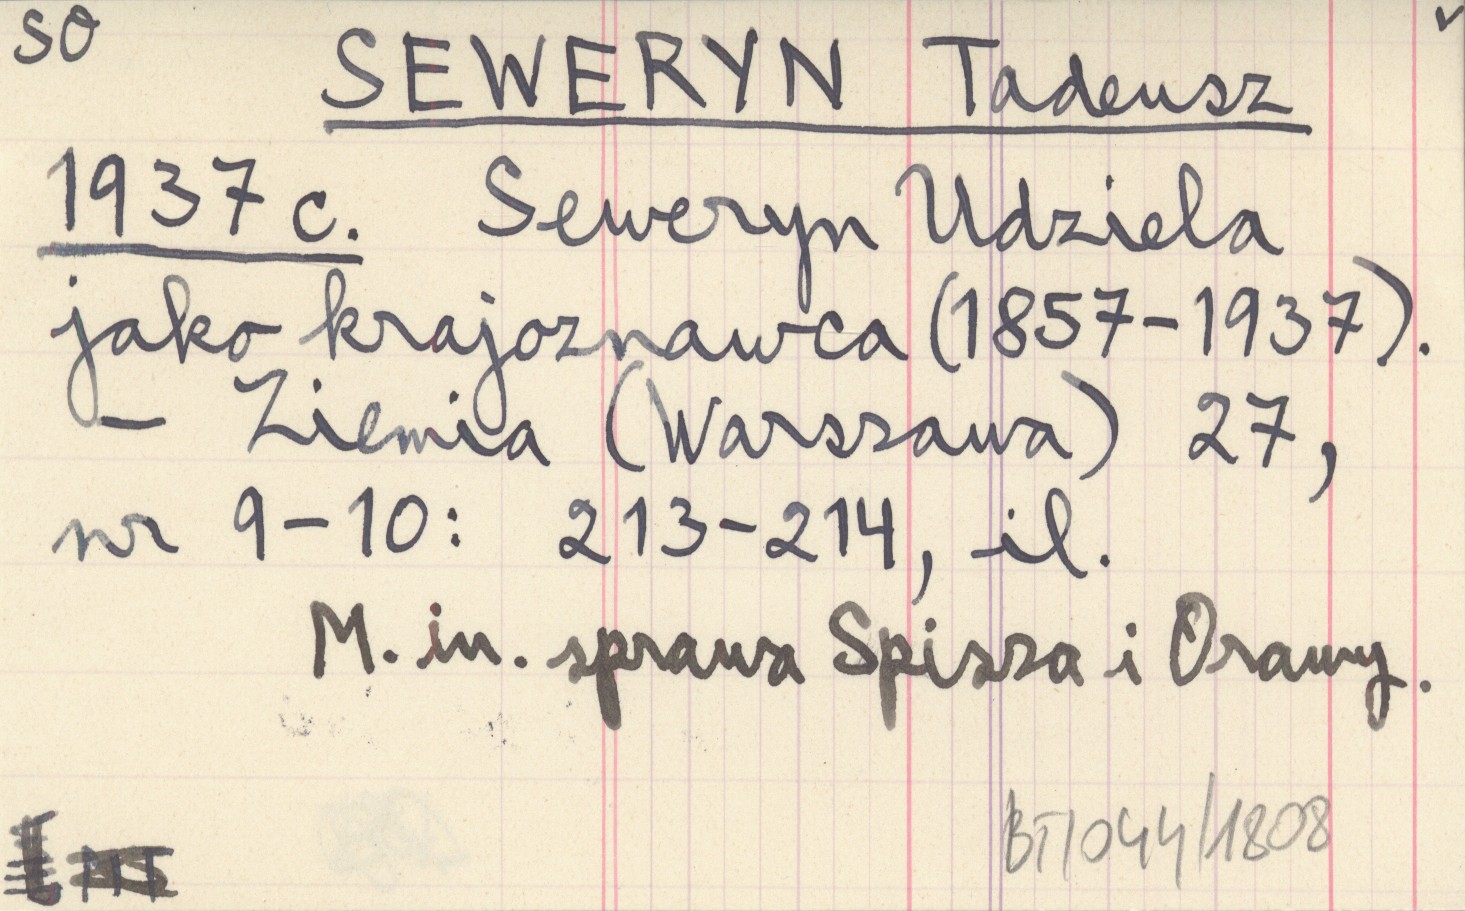 SO
SEWERYN Tadeusz
1937 c. Seweryn Udziela
jako krajoznawca (1857-1937).
- Ziemia (Warszawa) 27,
nr 9-10: 213-214, il.
M. in. sprawa Spisza i Orawy.
BT/044/1808